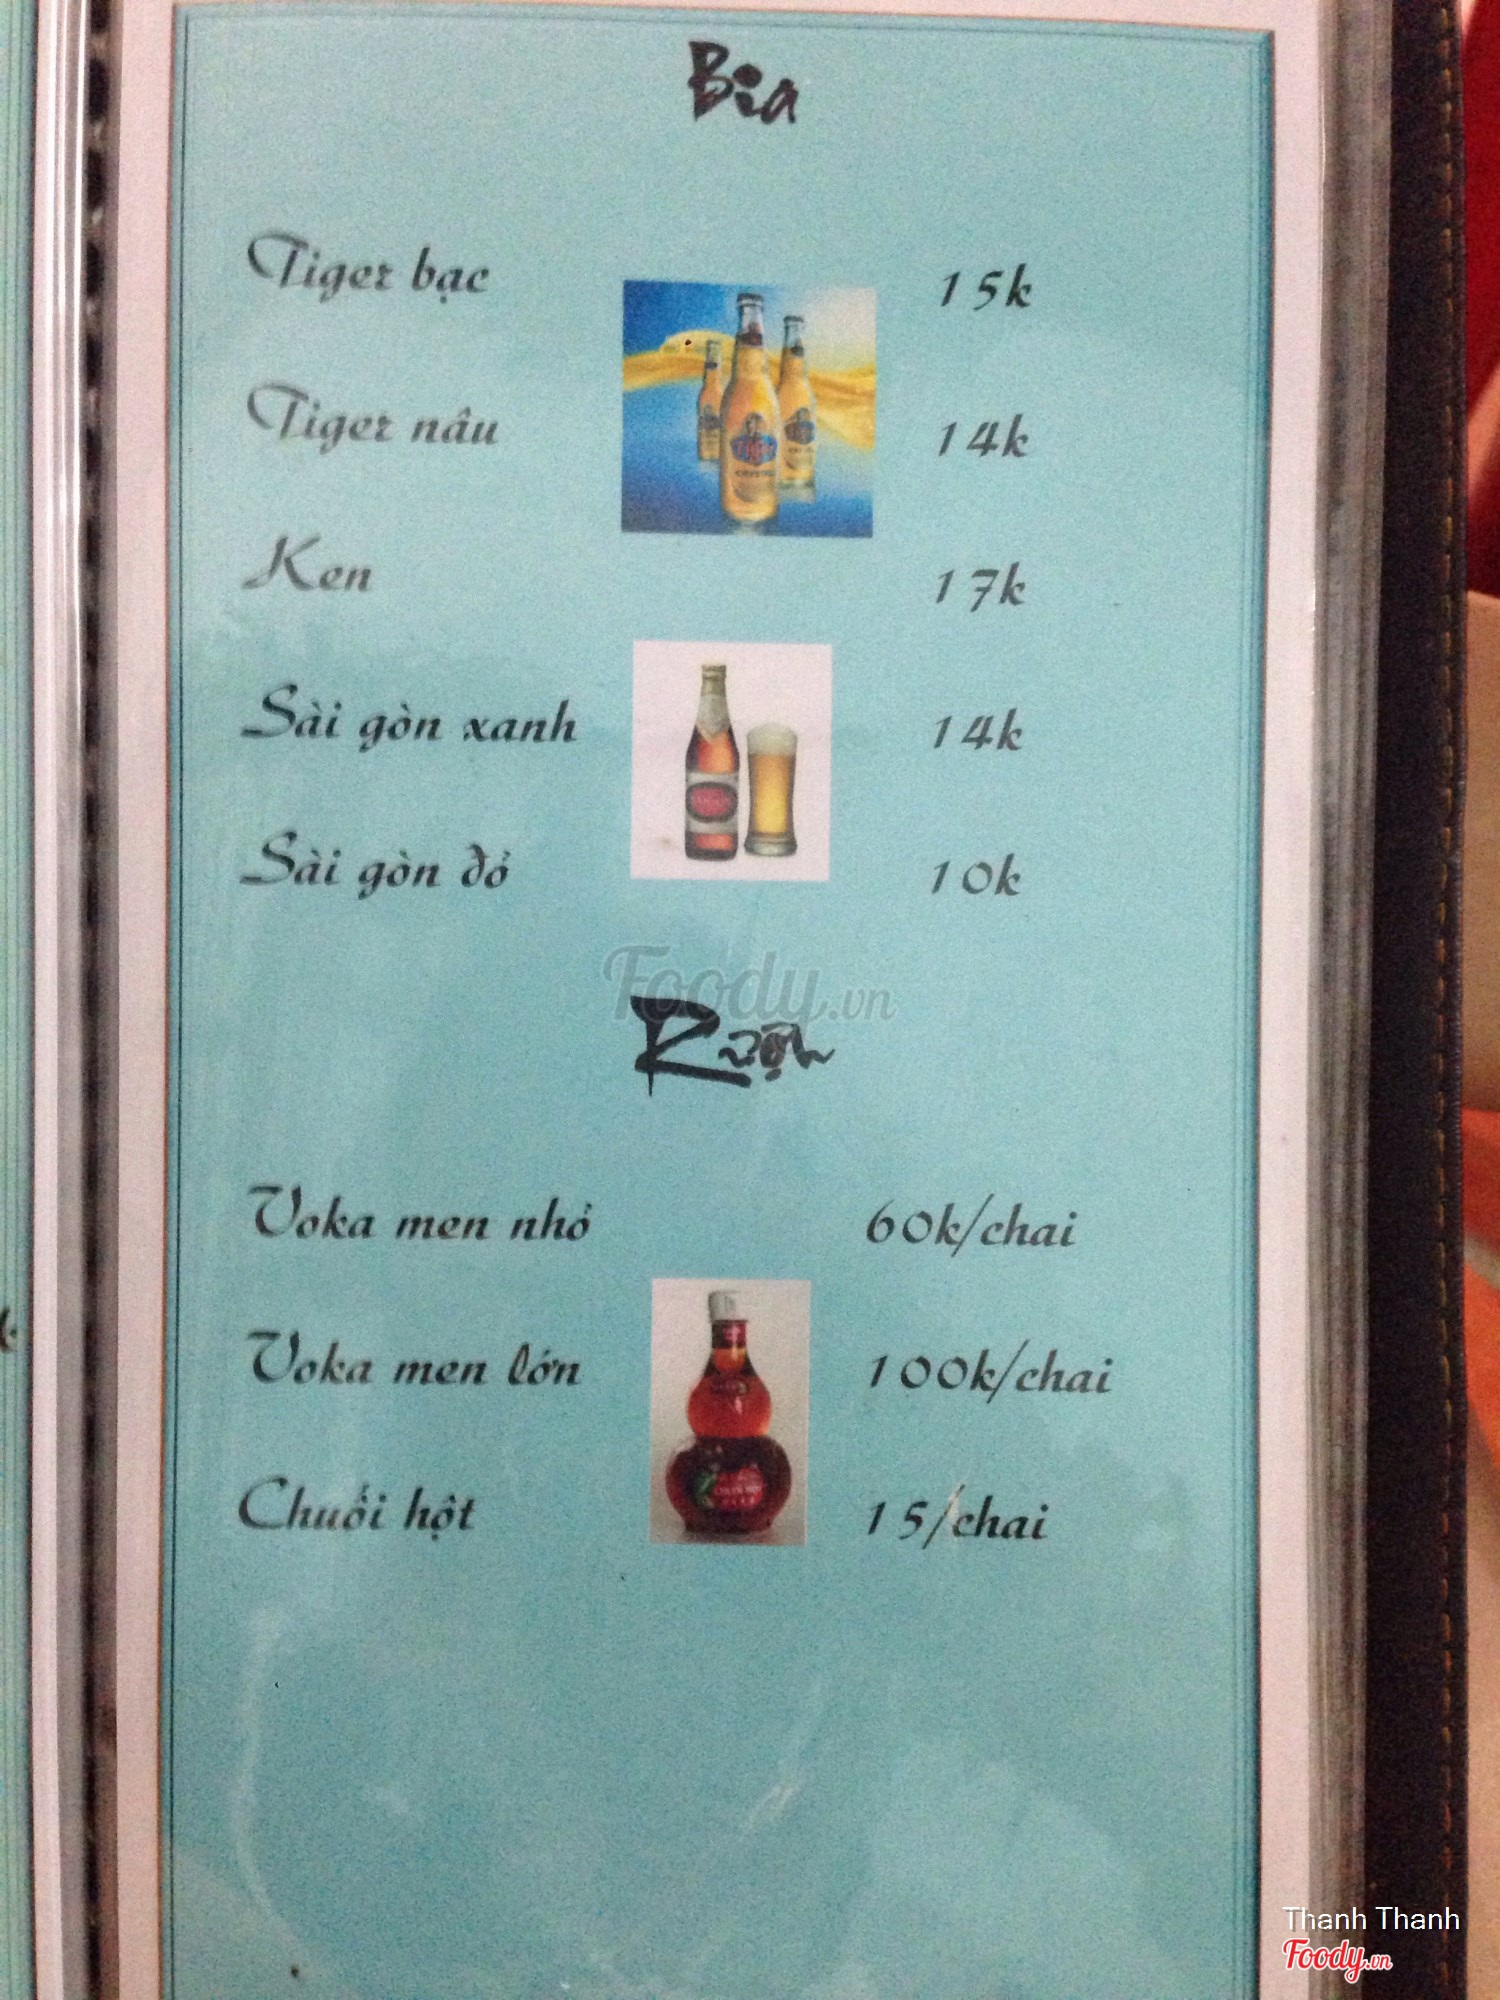 Bia
Tiger bạc 15k
Tiger nâu 14k
Ken 17k
Sài gòn xanh 14k
Sài gòn đỏ 10k
Foody.vn
Rượu
Voka men nhỏ 60k/chai
Voka men lớn 100k/chai
Chuối hột 15/chai
Thanh Thanh
Foody.vn